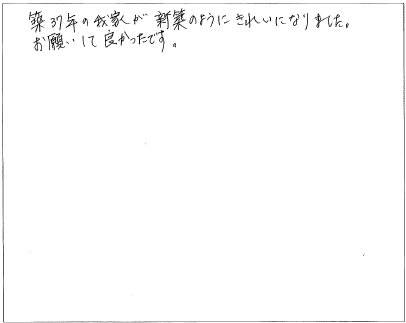 築37年の我家が新築のようにきれいになりました。
お願いして良かったです。